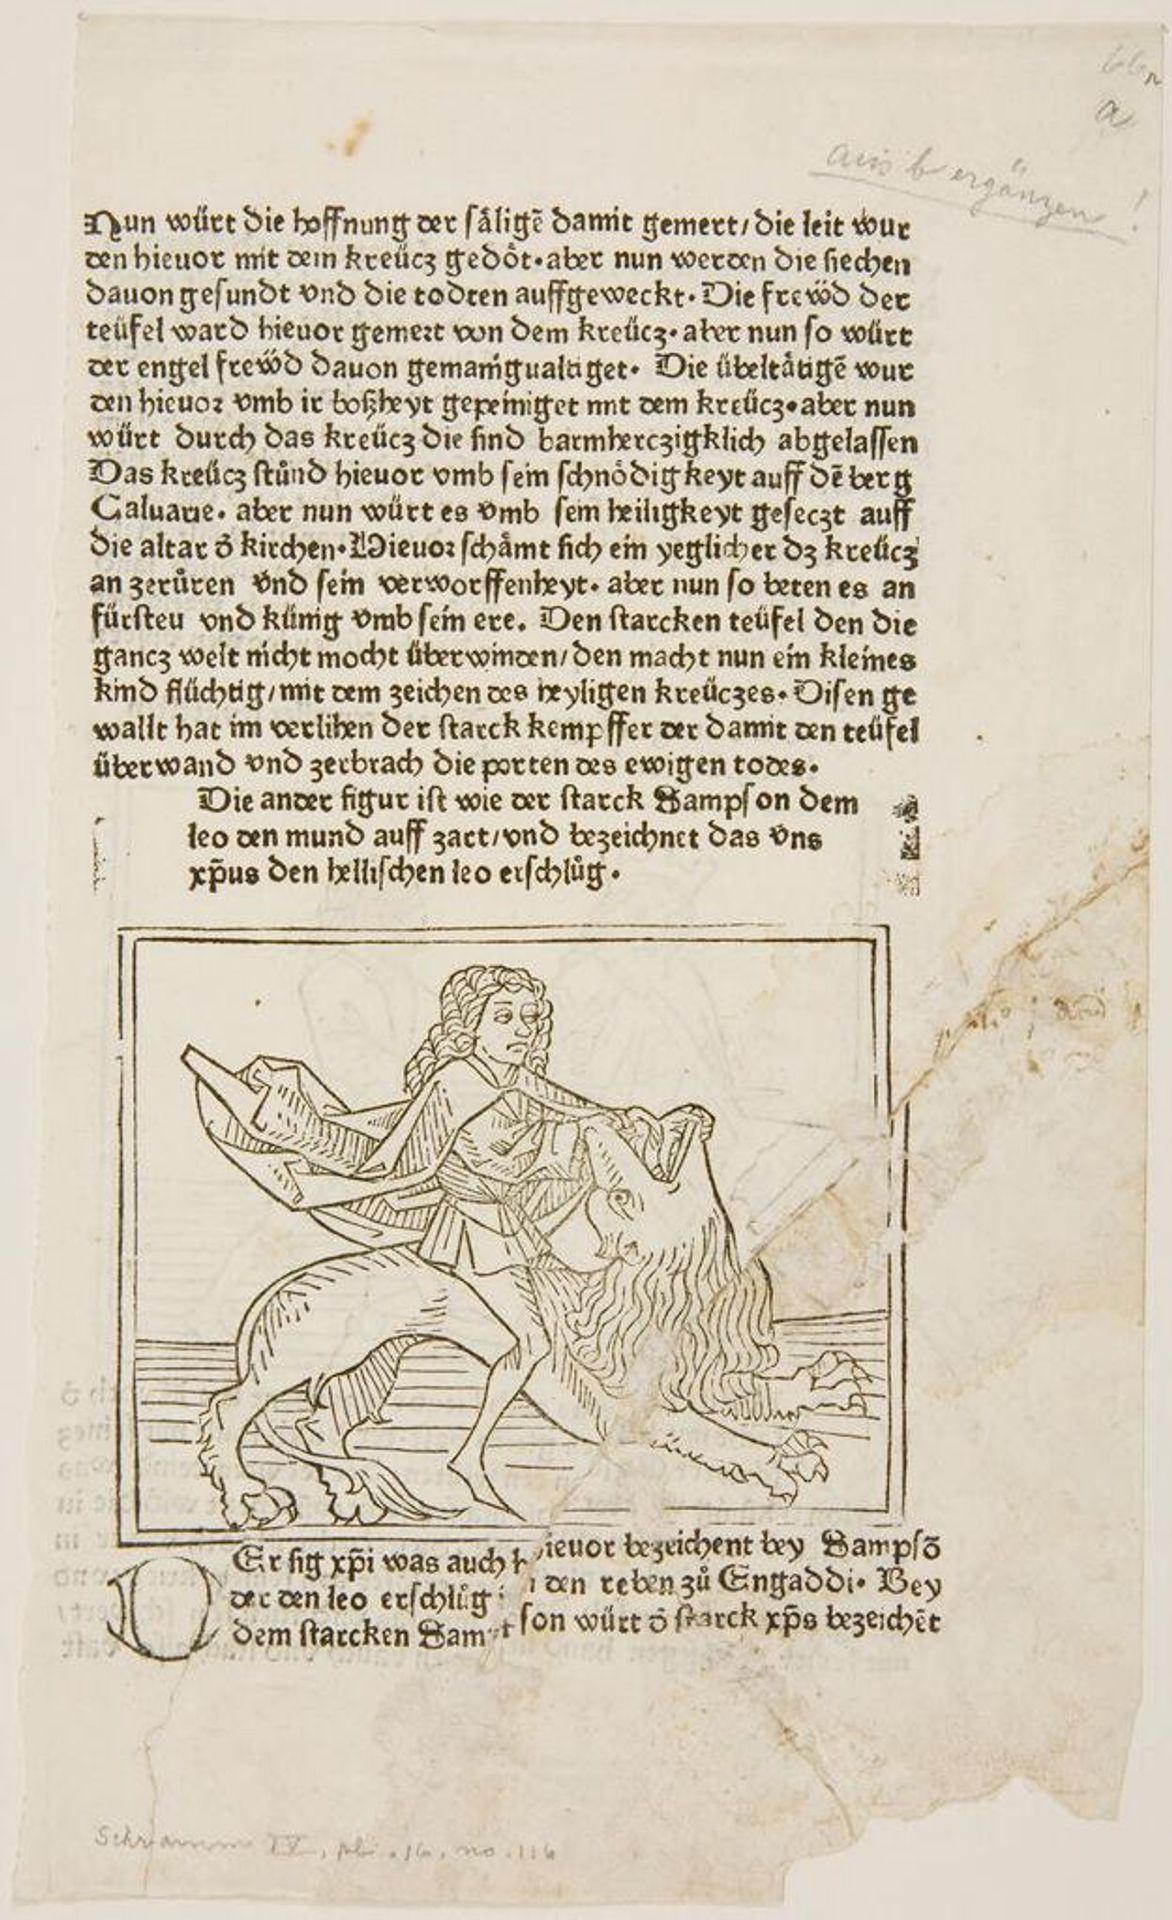 aus b ergänzen!
Nun würt die hoffnung der såligē damit gemert/die leit wur
den hieuor mit dem kreücz gedöt·aber nun werden die siechen
dauon gesundt vnd die todten auffgeweckt·Die frewd der
teüfel ward hieuor gemert von dem kreücz·aber nun so würt
der engel frewd dauon gemanigualtiget· Die übeltåtigē wur
den hieuor vmb ir boßheyt gepeiniget mit dem kreücz·aber nun
würt durch das kreücz die sind barmherczigklich abgelassen
Das kreücz stůnd hieuor vmb sein schnödigkeyt auff dē berg
Caluarie· aber nun würt es vmb sein heiligkeyt geseczt auff
die altar d̄ kirchen·Hieuor schåmt sich ein yeglicher dz kreücz
an zerůren vnd sein verworffenheyt· aber nun so beten es an
fürsteu vnd künig vmb sein ere. Den starcken teüfel den die
gancz welt nicht mocht überwinden/den macht nun ein kleines
kind flüchtig/mit dem zeichen des heyligen kreüczes·Disen ge
wallt hat im verlihen der starck kempffer der damit den teüfel
überwand vnd zerbrach die porten des ewigen todes·
Die ander figur ist wie der starck Sampson dem
leo den mund auff zart/vnd bezeichnet das vns
xp̄us den hellischen leo erschlůg·
DEr sig xp̄i was auch hieuor bezeichent bey Sampsō
der den leo erschlůg i den reben zů Engaddi· Bey
dem starcken Sampson würt d̄ starck xp̄s bezeichēt
Schramm IV, pl. 16, no. 116